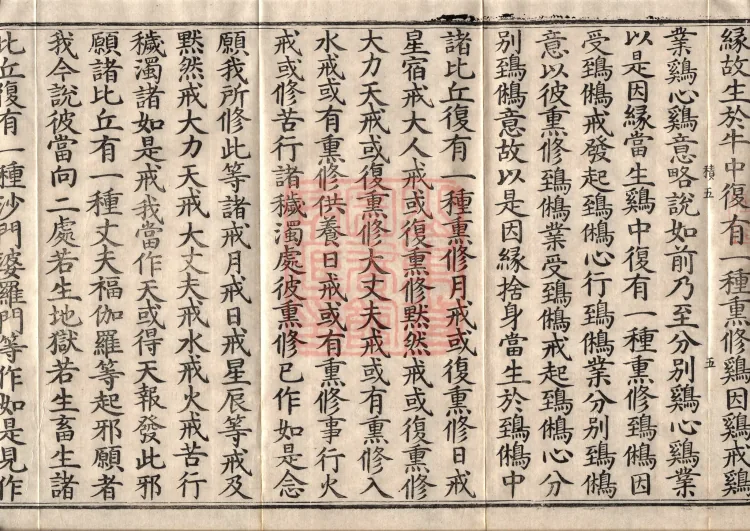 緣故生於牛中復有一種熏修鷄因鷄戒鷄
積五 五
業鷄心鷄意略說如前乃至分別鷄心鷄業
以是因緣當生鷄中復有一種熏修鵄鵂因
受鵄鵂戒發起鵄鵂心行鵄鵂業分別鵄鵂
意以彼熏修鵄鵂業受鵄鵂戒起鵄鵂心分
別鵄鵂意故以是因緣捨身當生於鵄鵂中
諸比丘復有一種熏修月戒或復熏修日戒
星宿戒大人戒或復熏修默然戒或復熏修
大力天戒或復熏修大丈夫戒或有熏修入
水戒或有熏修供養日戒或有熏修事行火
戒或修苦行諸穢濁處彼熏修已作如是念
願我所修此等諸戒月戒日戒星辰等戒及
默然戒大力天戒大丈夫戒水戒火戒苦行
穢濁諸如是戒我當作天或得天報發此邪
願諸比丘有一種丈夫福伽羅等起邪願者
我今說彼當向二處若生地獄若生畜生諸
比丘復有一種沙門婆羅門等作如是見作